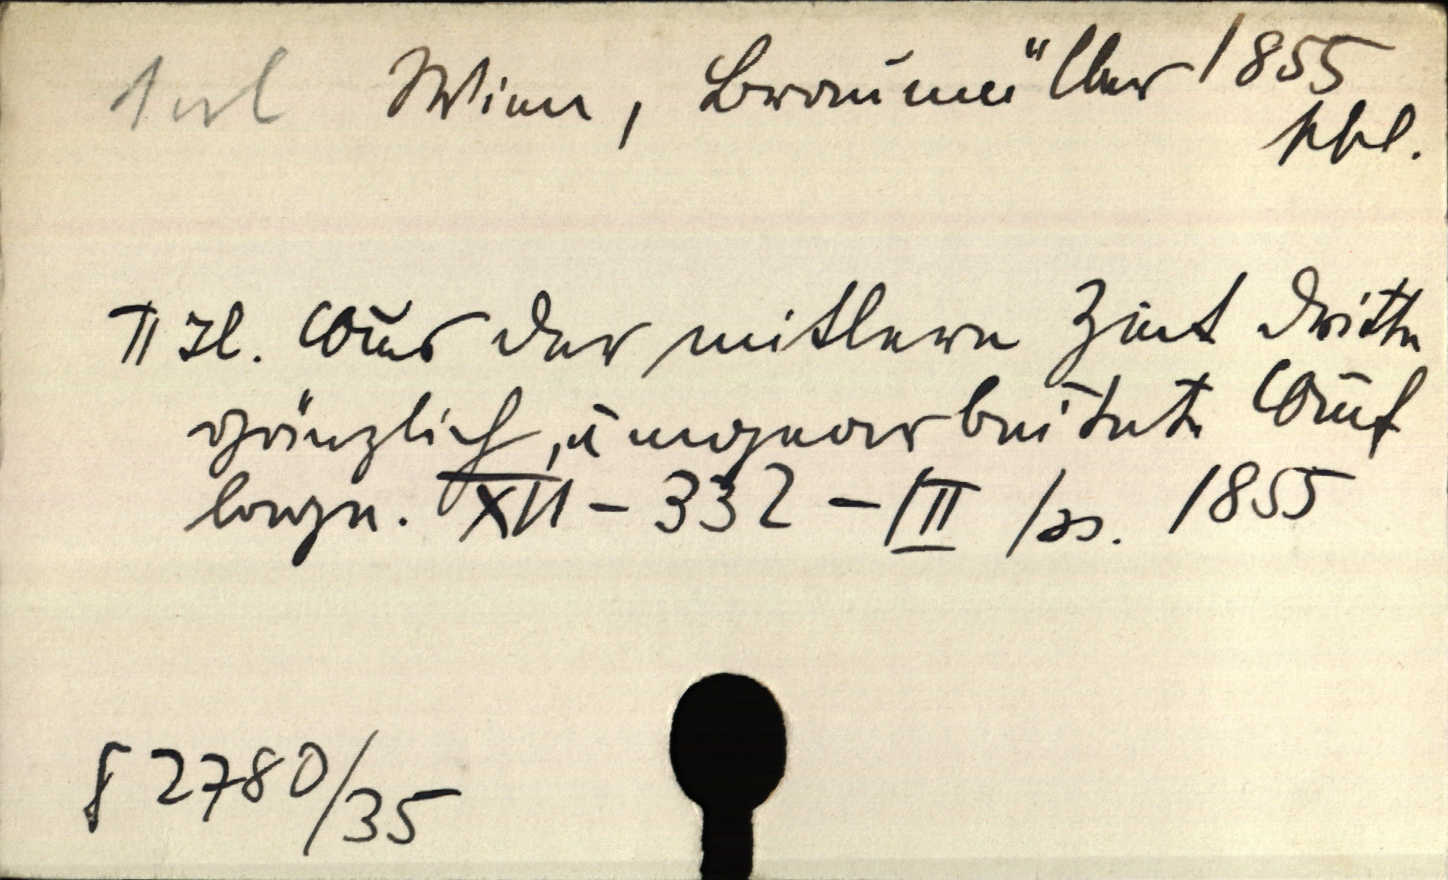 Wien, Braumüller 1855
II Tl. Aus der mittlern Zeit dritte
gänzlich umgearbeitete Auf
lage. XII – 332 – III ss. 1855
2780/35